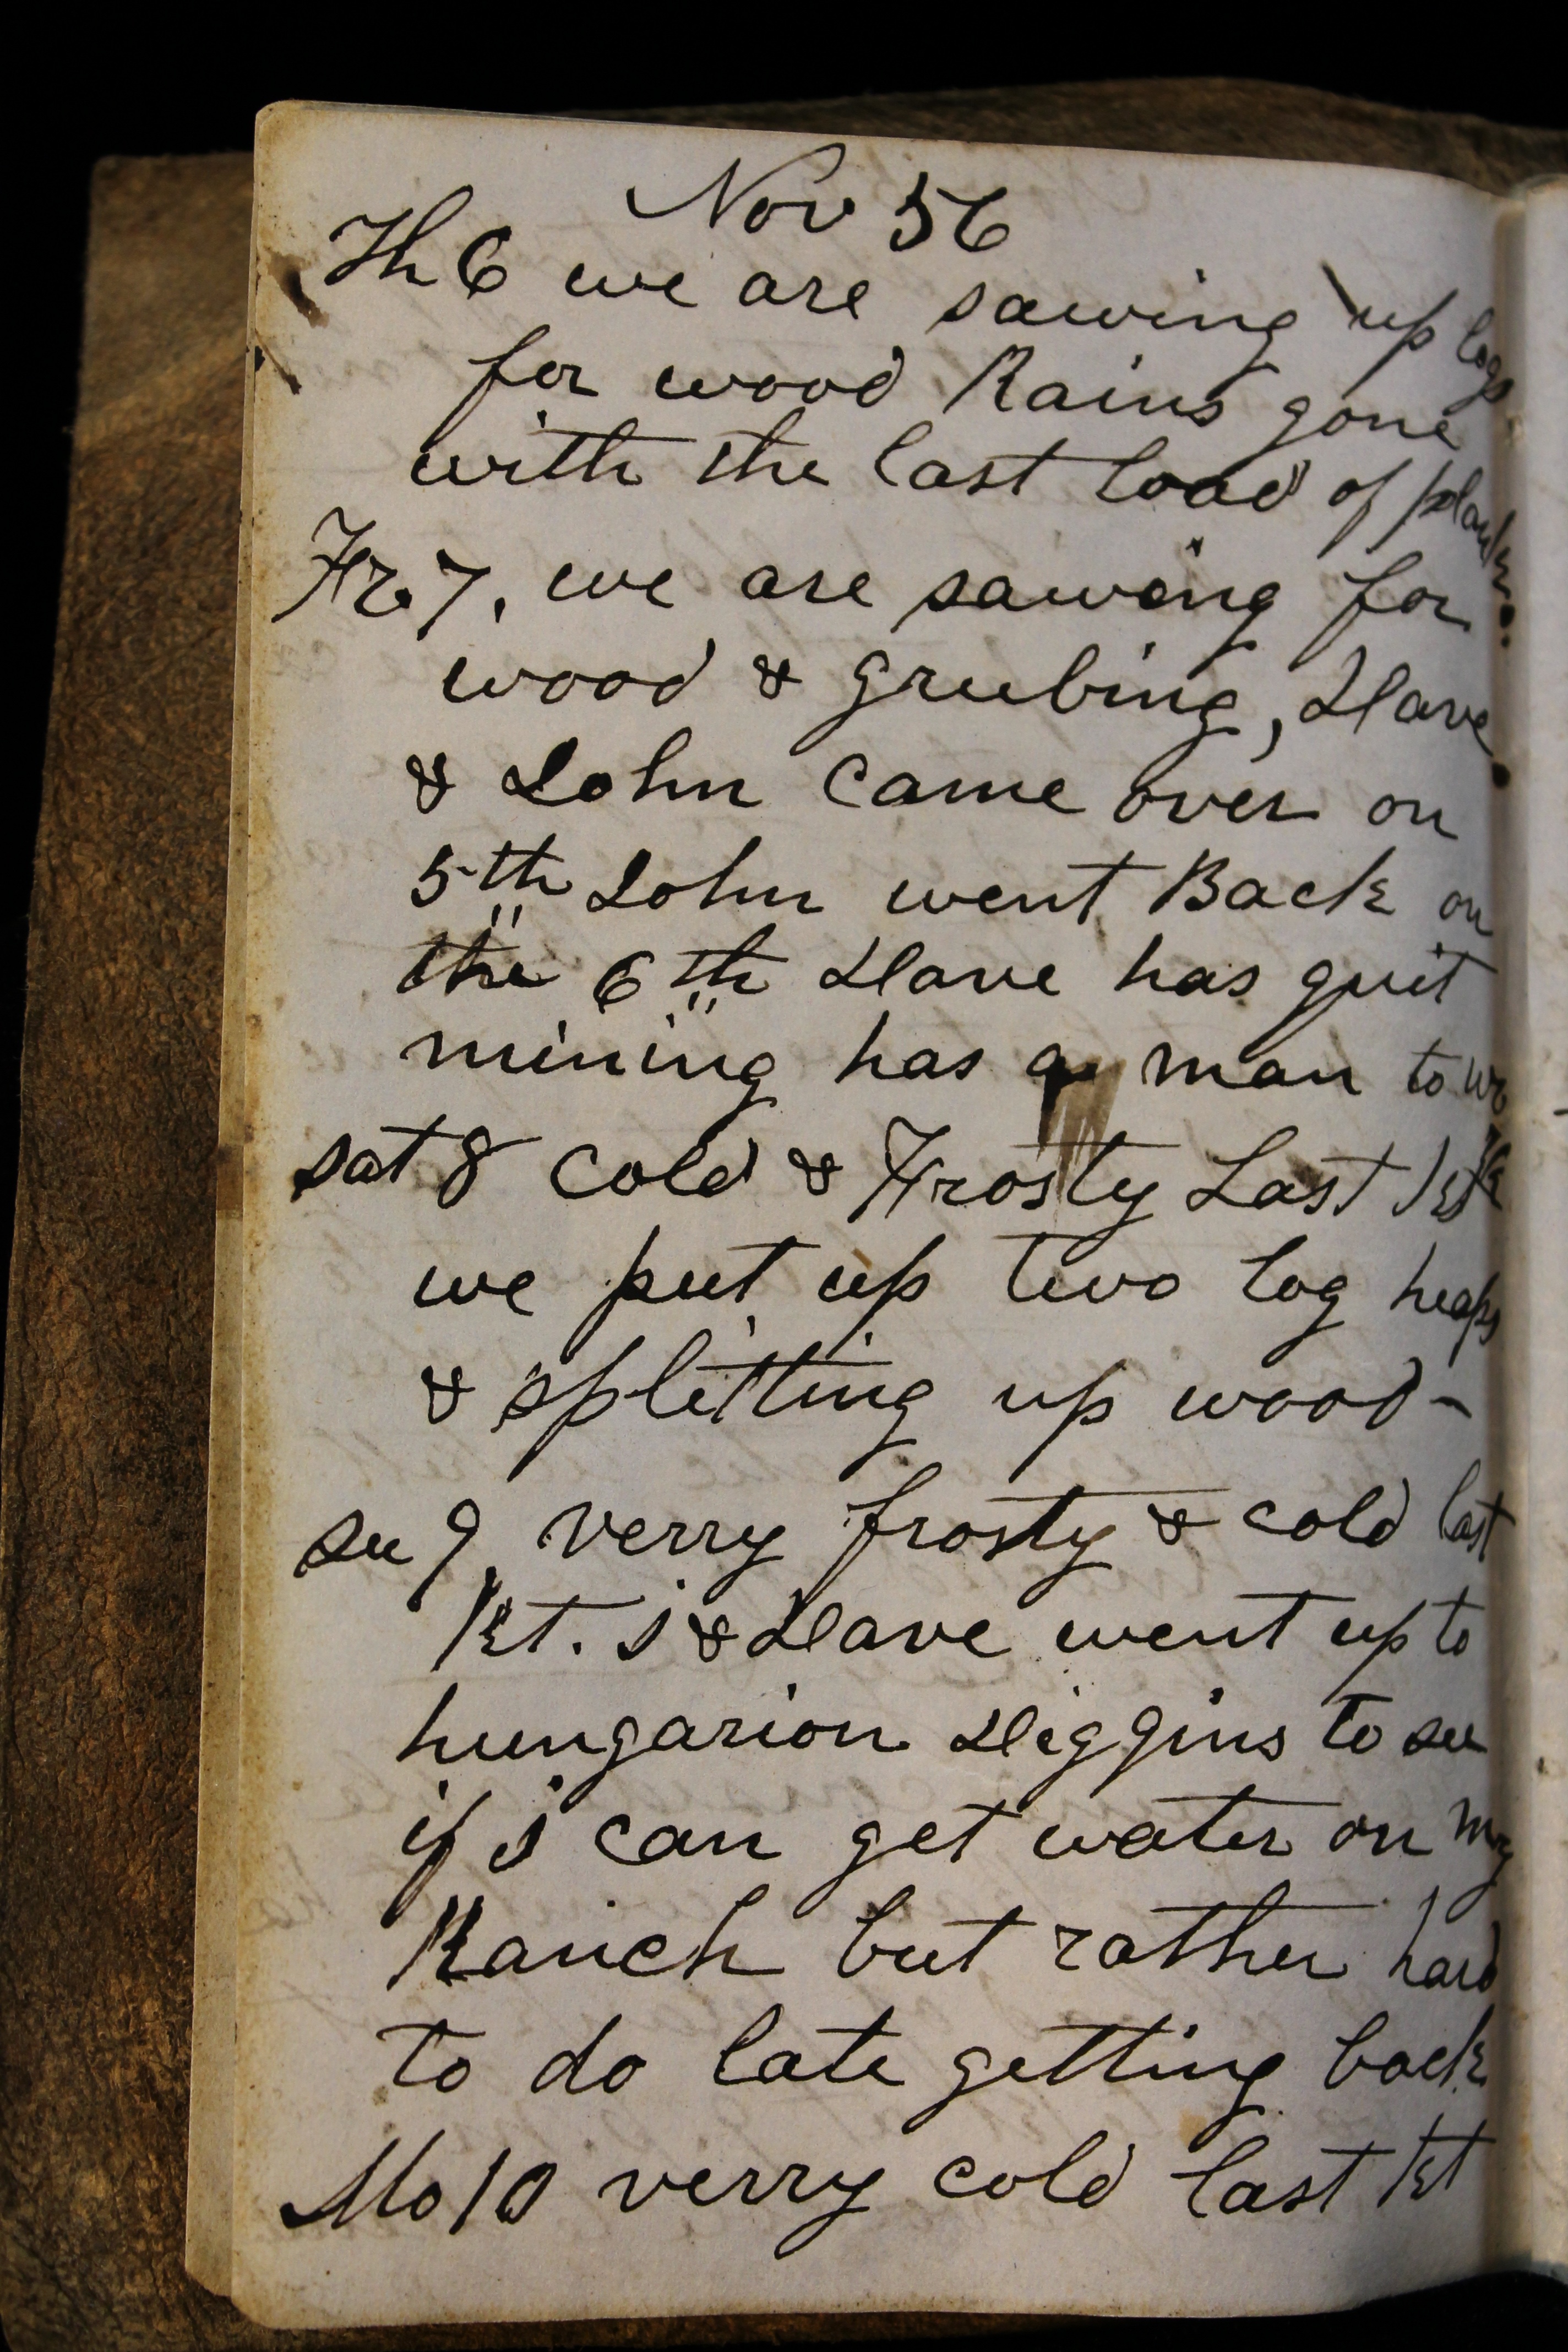 Nov 56
Th 6 we are sawing up logs
for wood Rains gone
with the last load of plank
Fr. 7, we are sawing for
wood & grubing, Dave
& John came over on
5th John went Back on
the 6th Dave has quit
mining has a man to work
sat 8 Cold & Frosty Last Nt
we put up two log heaps
& splitting up wood -
su 9, verry frosty & cold last
Nt. I & Dave went up to
hungarion Diggins to see
if I can get water on my
Ranch but rather hard
to do late getting back
Mo 10 verry cold last Nt